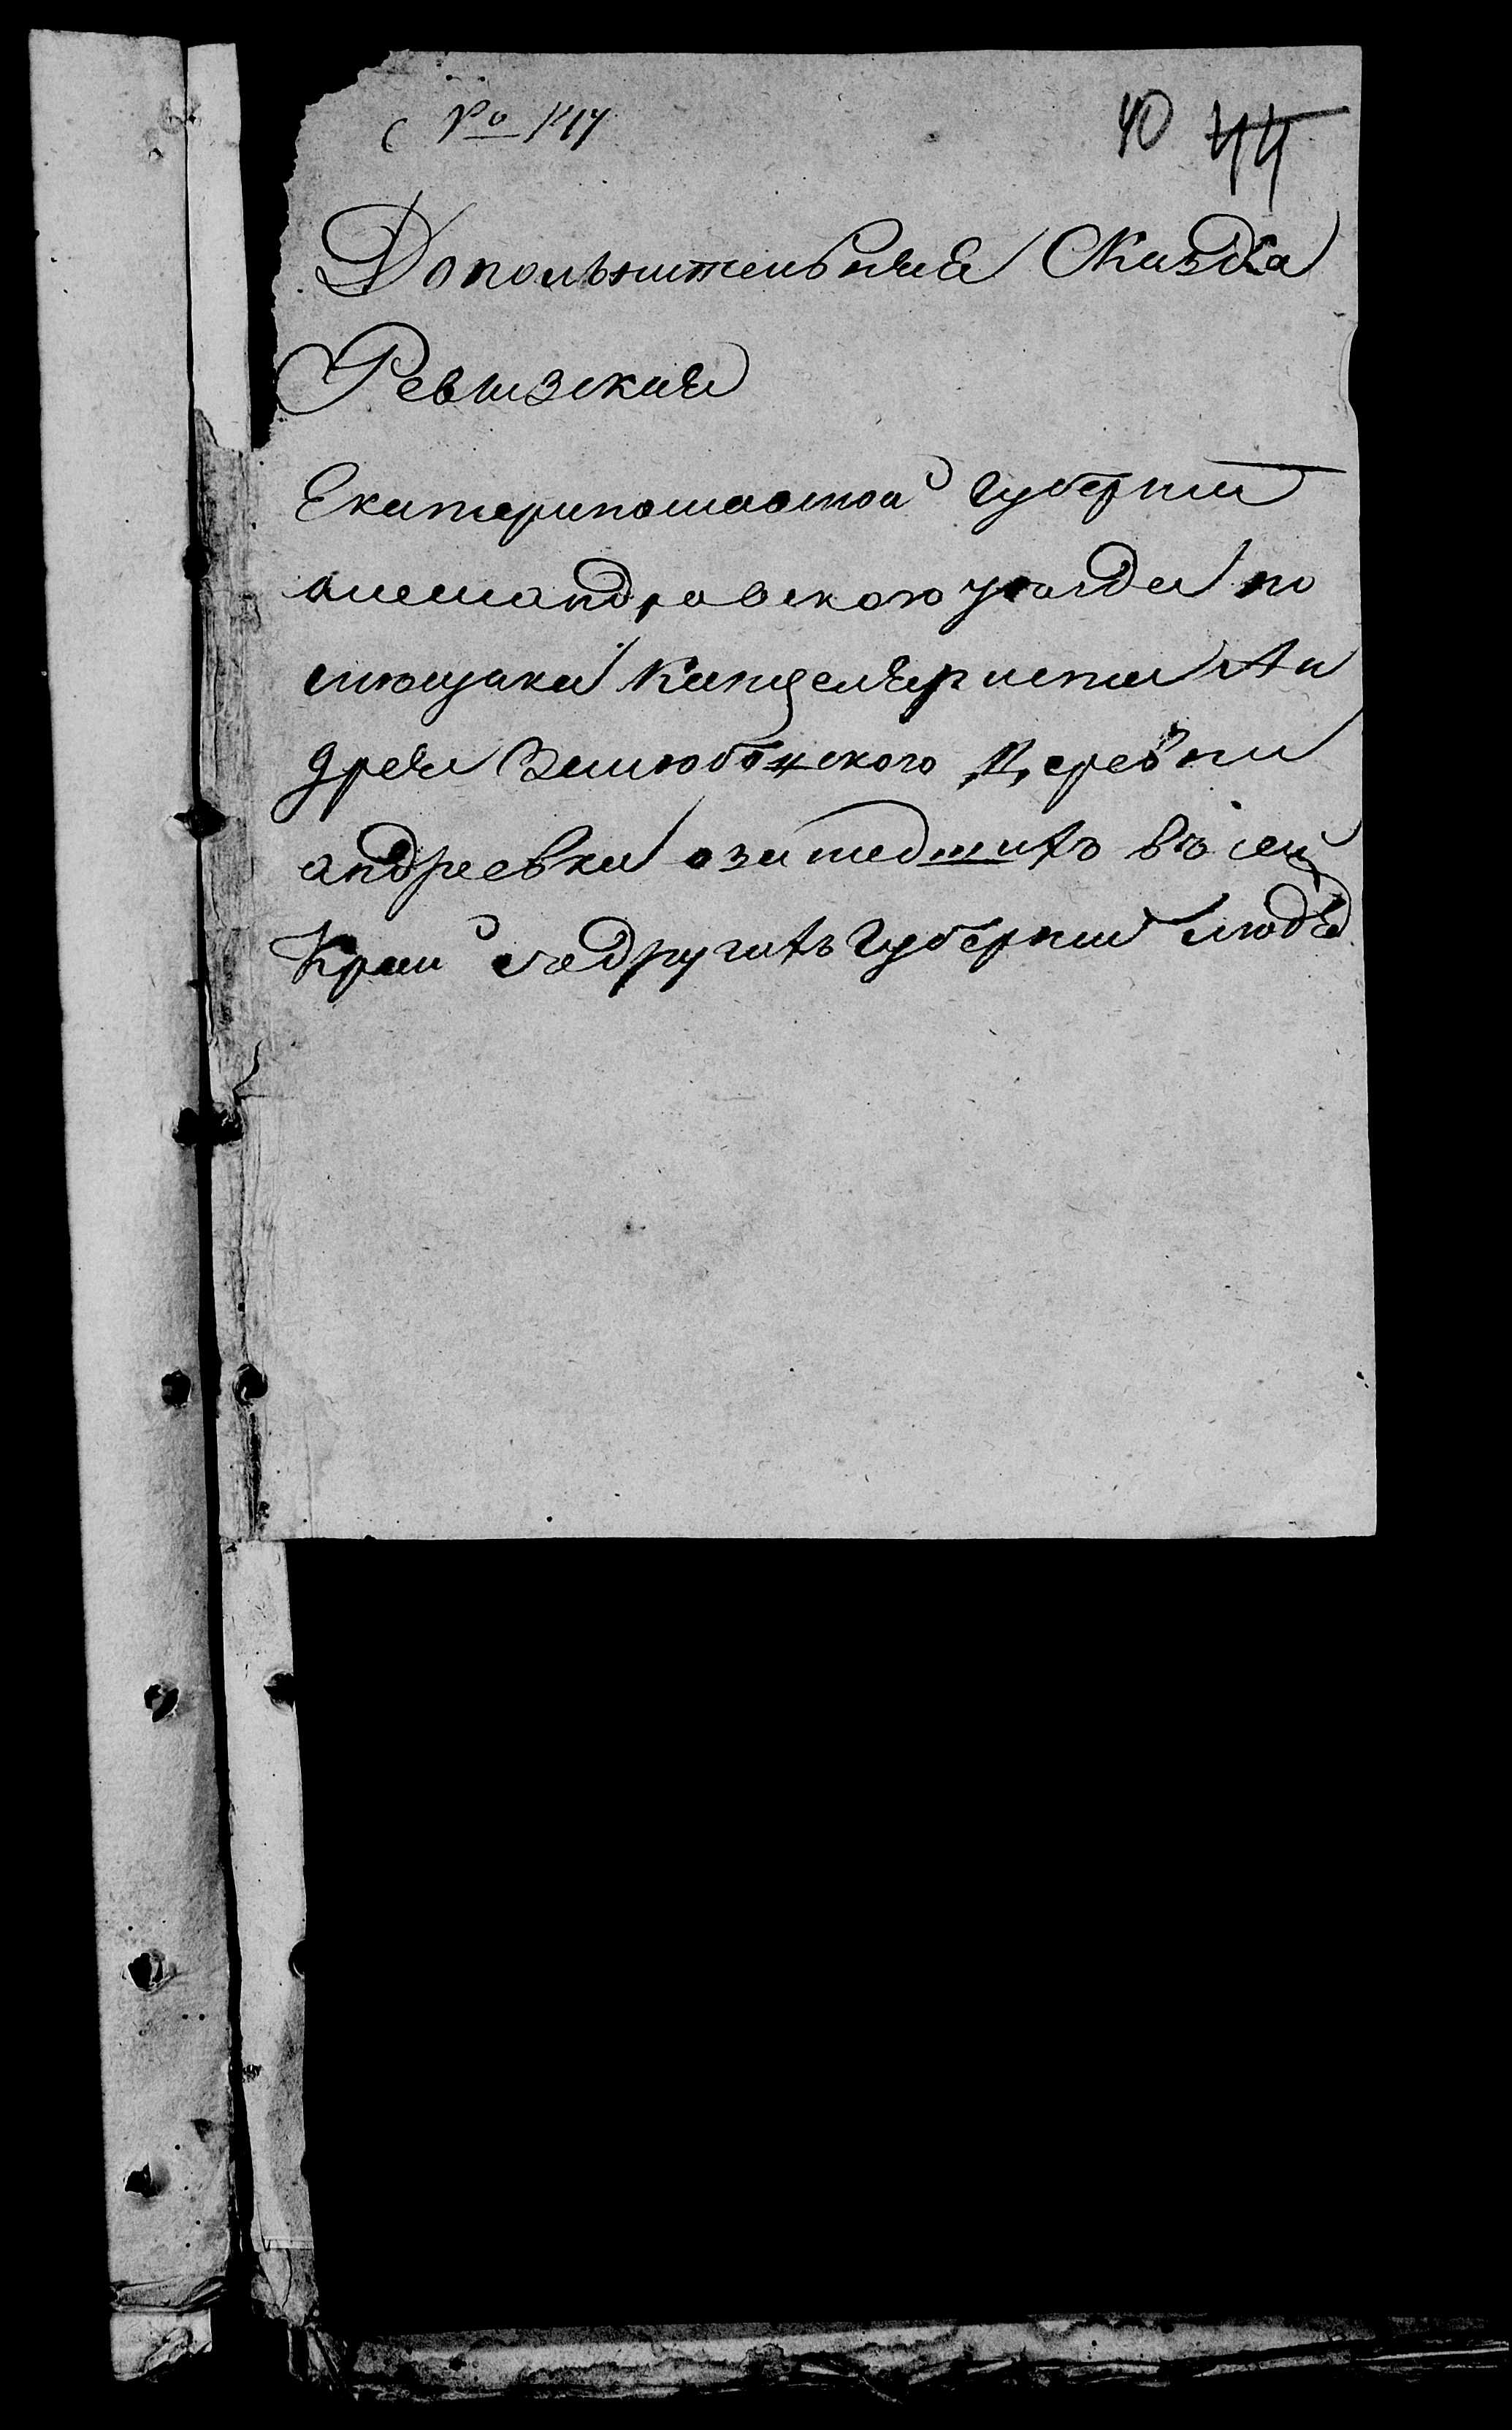 № 144
40 44
Дополънителъная Сказка
Ревизская
Екатеринославской губернии
александровского уезда по
мещика Канцеляриста Ан
дрея деревни
андреевки озашедшихъ въ сей
Край здругихъ губерний людѣ